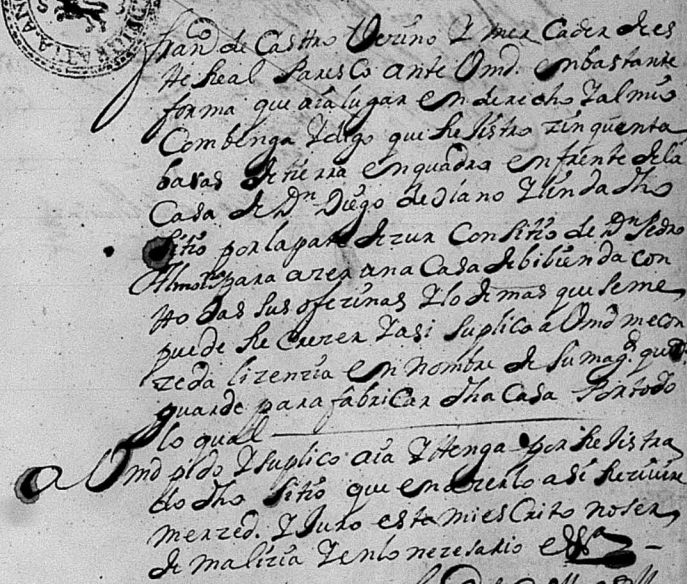 Fran.co de Casttro Verino Y mercader de es
tte Real Paresco ante Vmd. en bastante
forma que aia lugar en derecho Y al mio
Combenga Y digo que Rejistro zinquenta
baras de tierra en quadro en frente de la
Casa de D.n Diego de diano Y linda dho
sitio por la parte de zur Con Sitio de D.n Pedro
para azer una Casa de bibienda con
ttodas sus ofezinas Y lo demas que se me
puede Recrezer Y asi Suplico a Vmd me con
zeda lizenzia en nombre de su mag.d que D.s
guarde para fabricar dha Casa Por todo
lo qual
A Vmd pido Y suplico aia Y ttenga por Rejistra
do dho Sitio que en azerlo asi Rezivire
merzed. Y Juro este mi escrito no ser
de malizia Y en lo nezesario